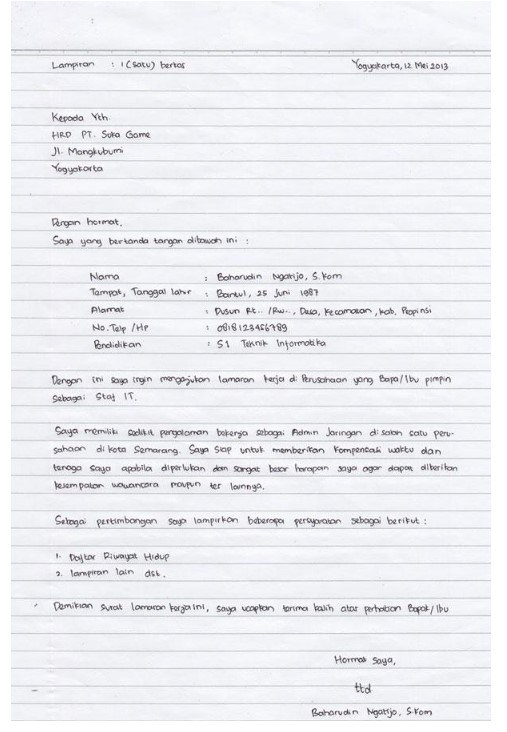 Lampiran : 1 (satu) berkas
Yogyakarta, 12 Mei 2013
Kepada Yth.
HRD PT. Suka Game
Jl. Mangkubumi
Yogyakarta
Dengan hormat,
Saya yang bertanda tangan dibawah ini :
Nama : Baharudin Ngatijo, S.Kom
Tempat, Tanggal lahir : Bantul, 25 Juni 1987
Alamat : Dusun Rt.. /Rw.., Desa, Kecamatan, Kab, Propinsi
No. Telp /HP : 0818123456789
Pendidikan : S1 Teknik Informatika
Dengan ini saya ingin mengajukan lamaran kerja di Perusahaan yang Bapa/Ibu pimpin
Sebagai Staf IT.
Saya memiliki sedikit pengalaman bekerja sebagai Admin Jaringan di salah satu peru-
sahaan di kota Semarang. Saya Siap untuk memberikan kompensasi waktu dan
tenaga saya apabila diperlukan dan sangat besar harapan saya agar dapat diberikan
kesempatan wawancara maupun tes lainnya.
Sebagai pertimbangan saya lampirkan beberapa persyaratan sebagai berikut :
1. Daftar Riwayat Hidup
2. lampiran lain dst.
Demikian surat lamaran kerja ini, saya ucapkan terima kasih atas perhatian Bapak/Ibu
Hormat Saya,
ttd
Baharudin Ngatijo, S.Kom